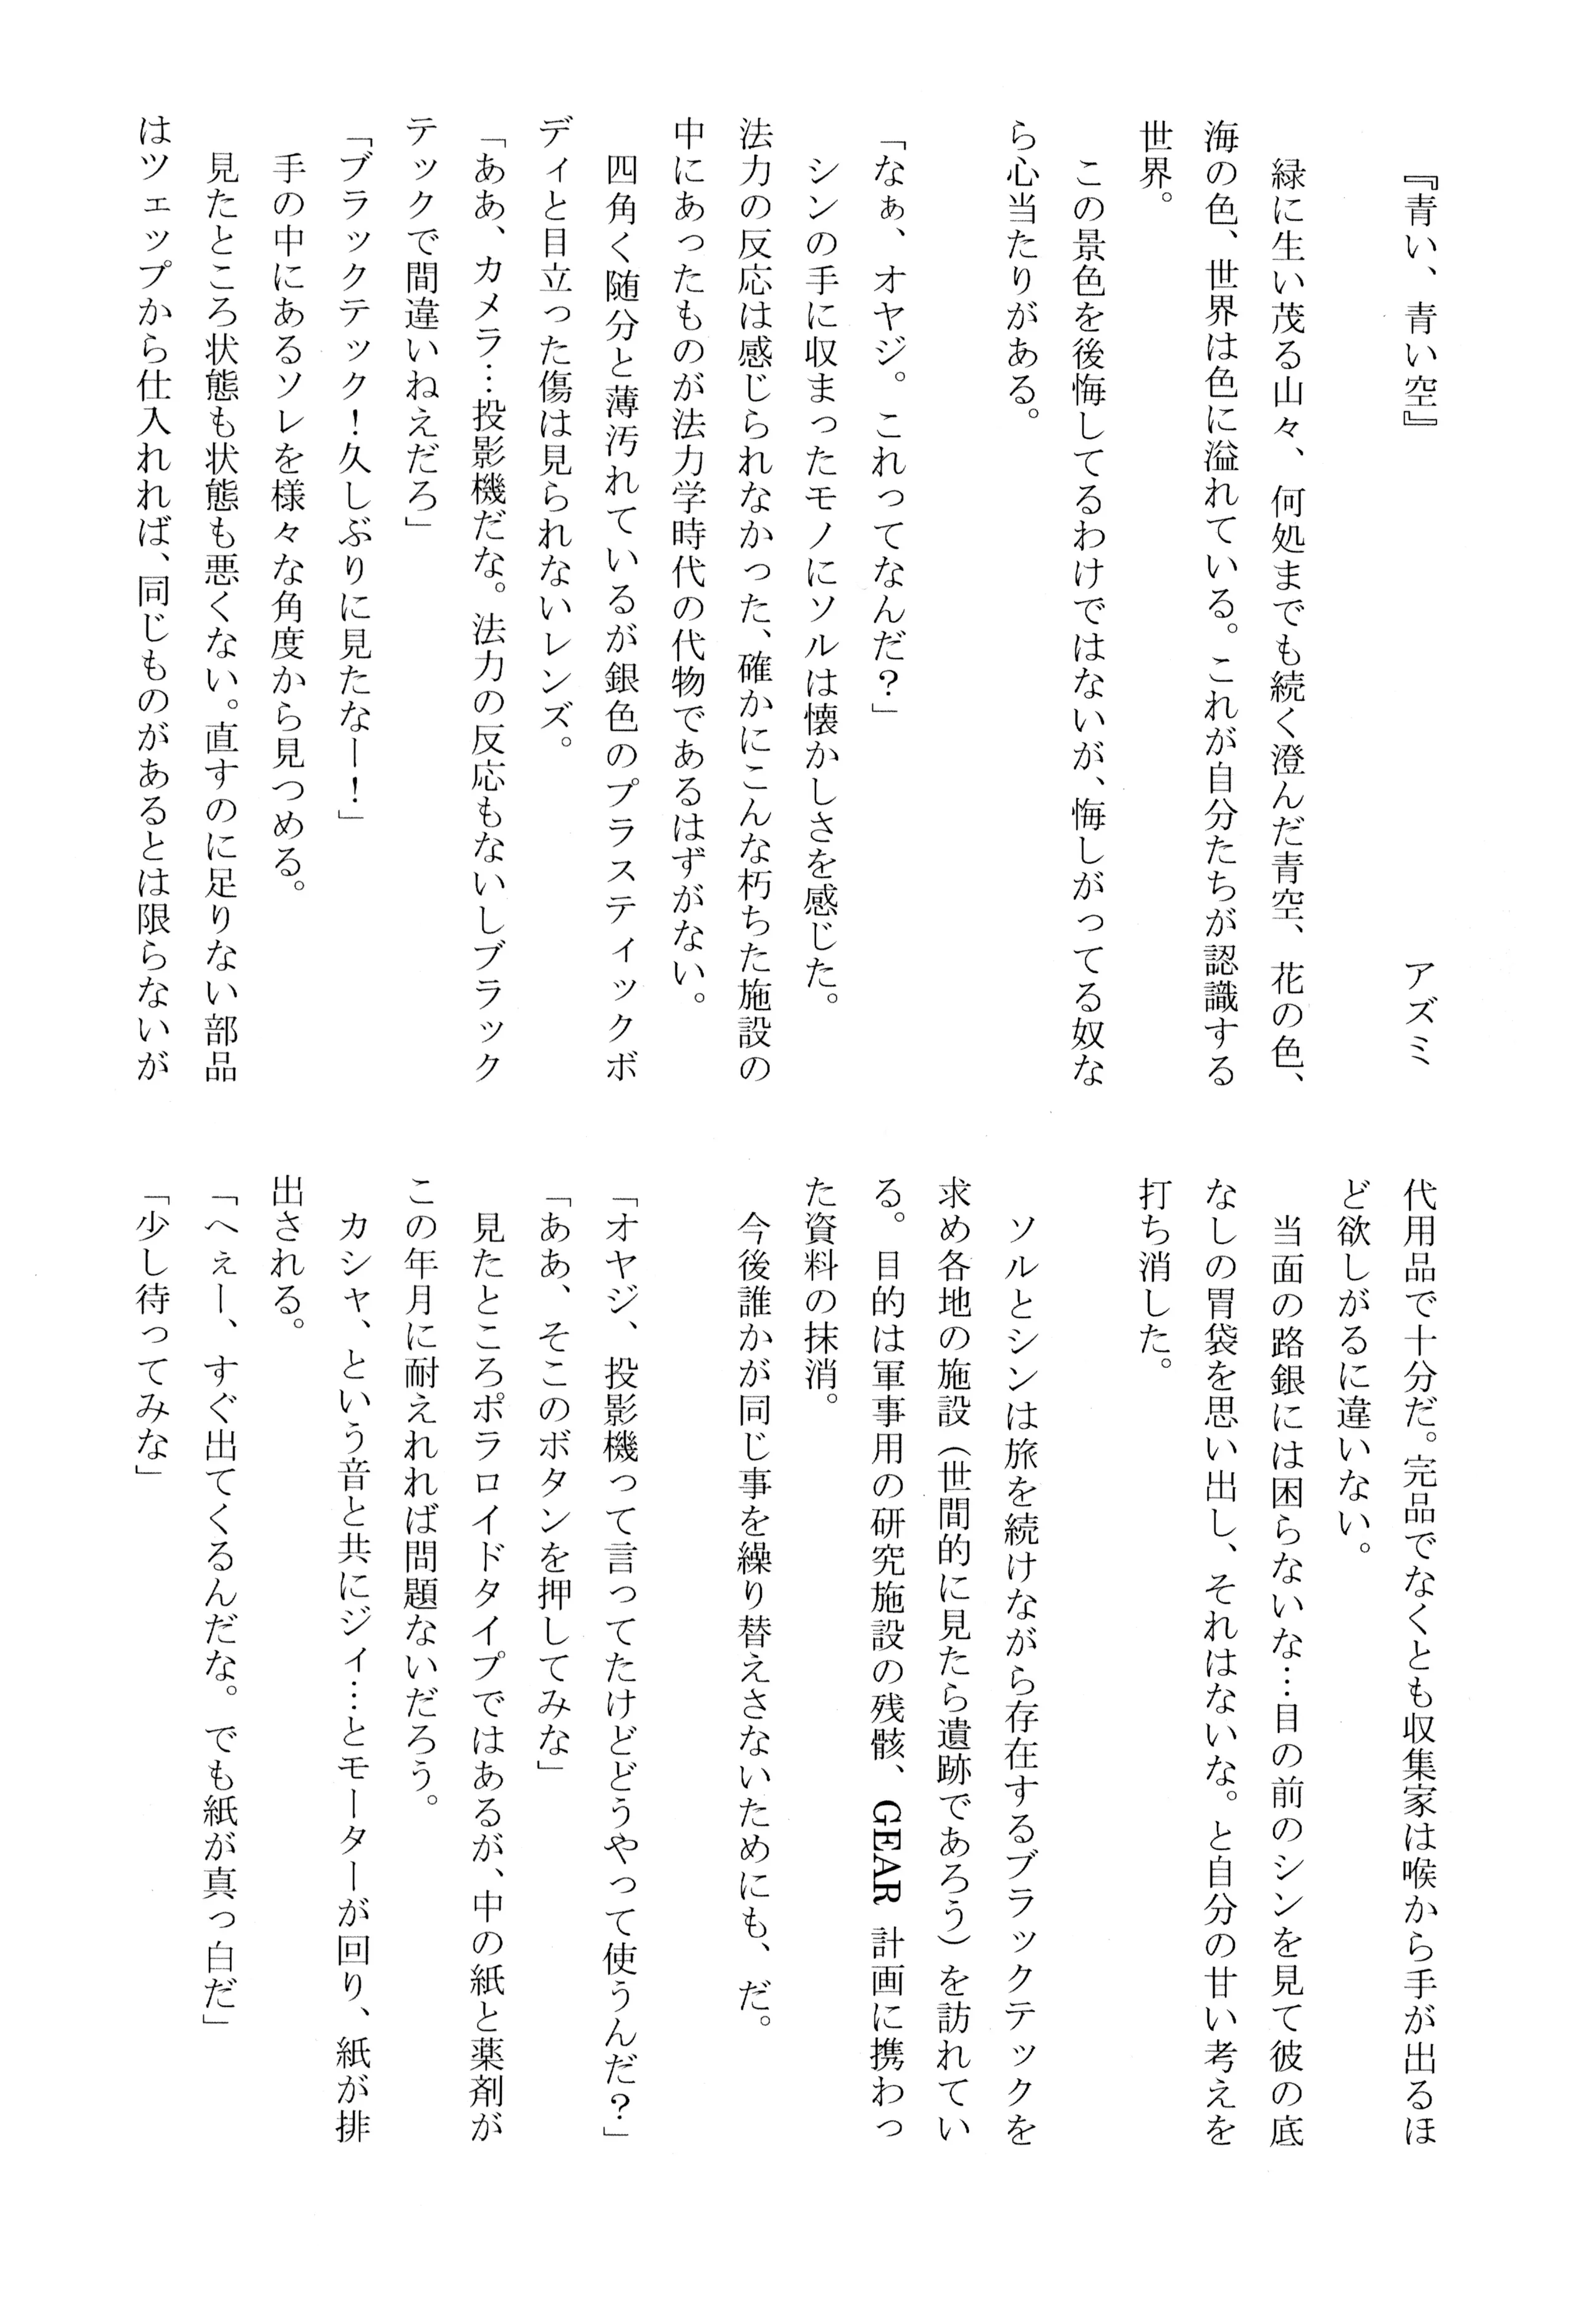 『青い、青い空』
アズミ
緑に生い茂る山々、何処までも続く澄んだ青空、花の色、
海の色、世界は色に溢れている。これが自分たちが認識する
世界。
この景色を後悔してるわけではないが、悔しがってる奴な
ら心当たりがある。
「なぁ、オヤジ。これってなんだ？」
シンの手に収まったモノにソルは懐かしさを感じた。
法力の反応は感じられなかった、確かにこんな朽ちた施設の
中にあったものが法力学時代の代物であるはずがない。
四角く随分と薄汚れているが銀色のプラスティックボ
ディと目立った傷は見られないレンズ。
「ああ、カメラ…投影機だな。法力の反応もないしブラック
テックで間違いねえだろ」
「ブラックテック！久しぶりに見たなー！」
手の中にあるソレを様々な角度から見つめる。
見たところ状態も状態も悪くない。直すのに足りない部品
はツェップから仕入れれば、同じものがあるとは限らないが
代用品で十分だ。完品でなくとも収集家は喉から手が出るほ
ど欲しがるに違いない。
当面の路銀には困らないな…目の前のシンを見て彼の底
なしの胃袋を思い出し、それはないな。と自分の甘い考えを
打ち消した。
ソルとシンは旅を続けながら存在するブラックテックを
求め各地の施設（世間的に見たら遺跡であろう）を訪れてい
る。目的は軍事用の研究施設の残骸、GEAR 計画に携わっ
た資料の抹消。
今後誰かが同じ事を繰り替えさないためにも、だ。
「オヤジ、投影機って言ってたけどどうやって使うんだ？」
「ああ、そこのボタンを押してみな」
見たところポラロイドタイプではあるが、中の紙と薬剤が
この年月に耐えれれば問題ないだろう。
カシャ、という音と共にジィ…とモーターが回り、紙が排
出される。
「へぇー、すぐ出てくるんだな。でも紙が真っ白だ」
「少し待ってみな」